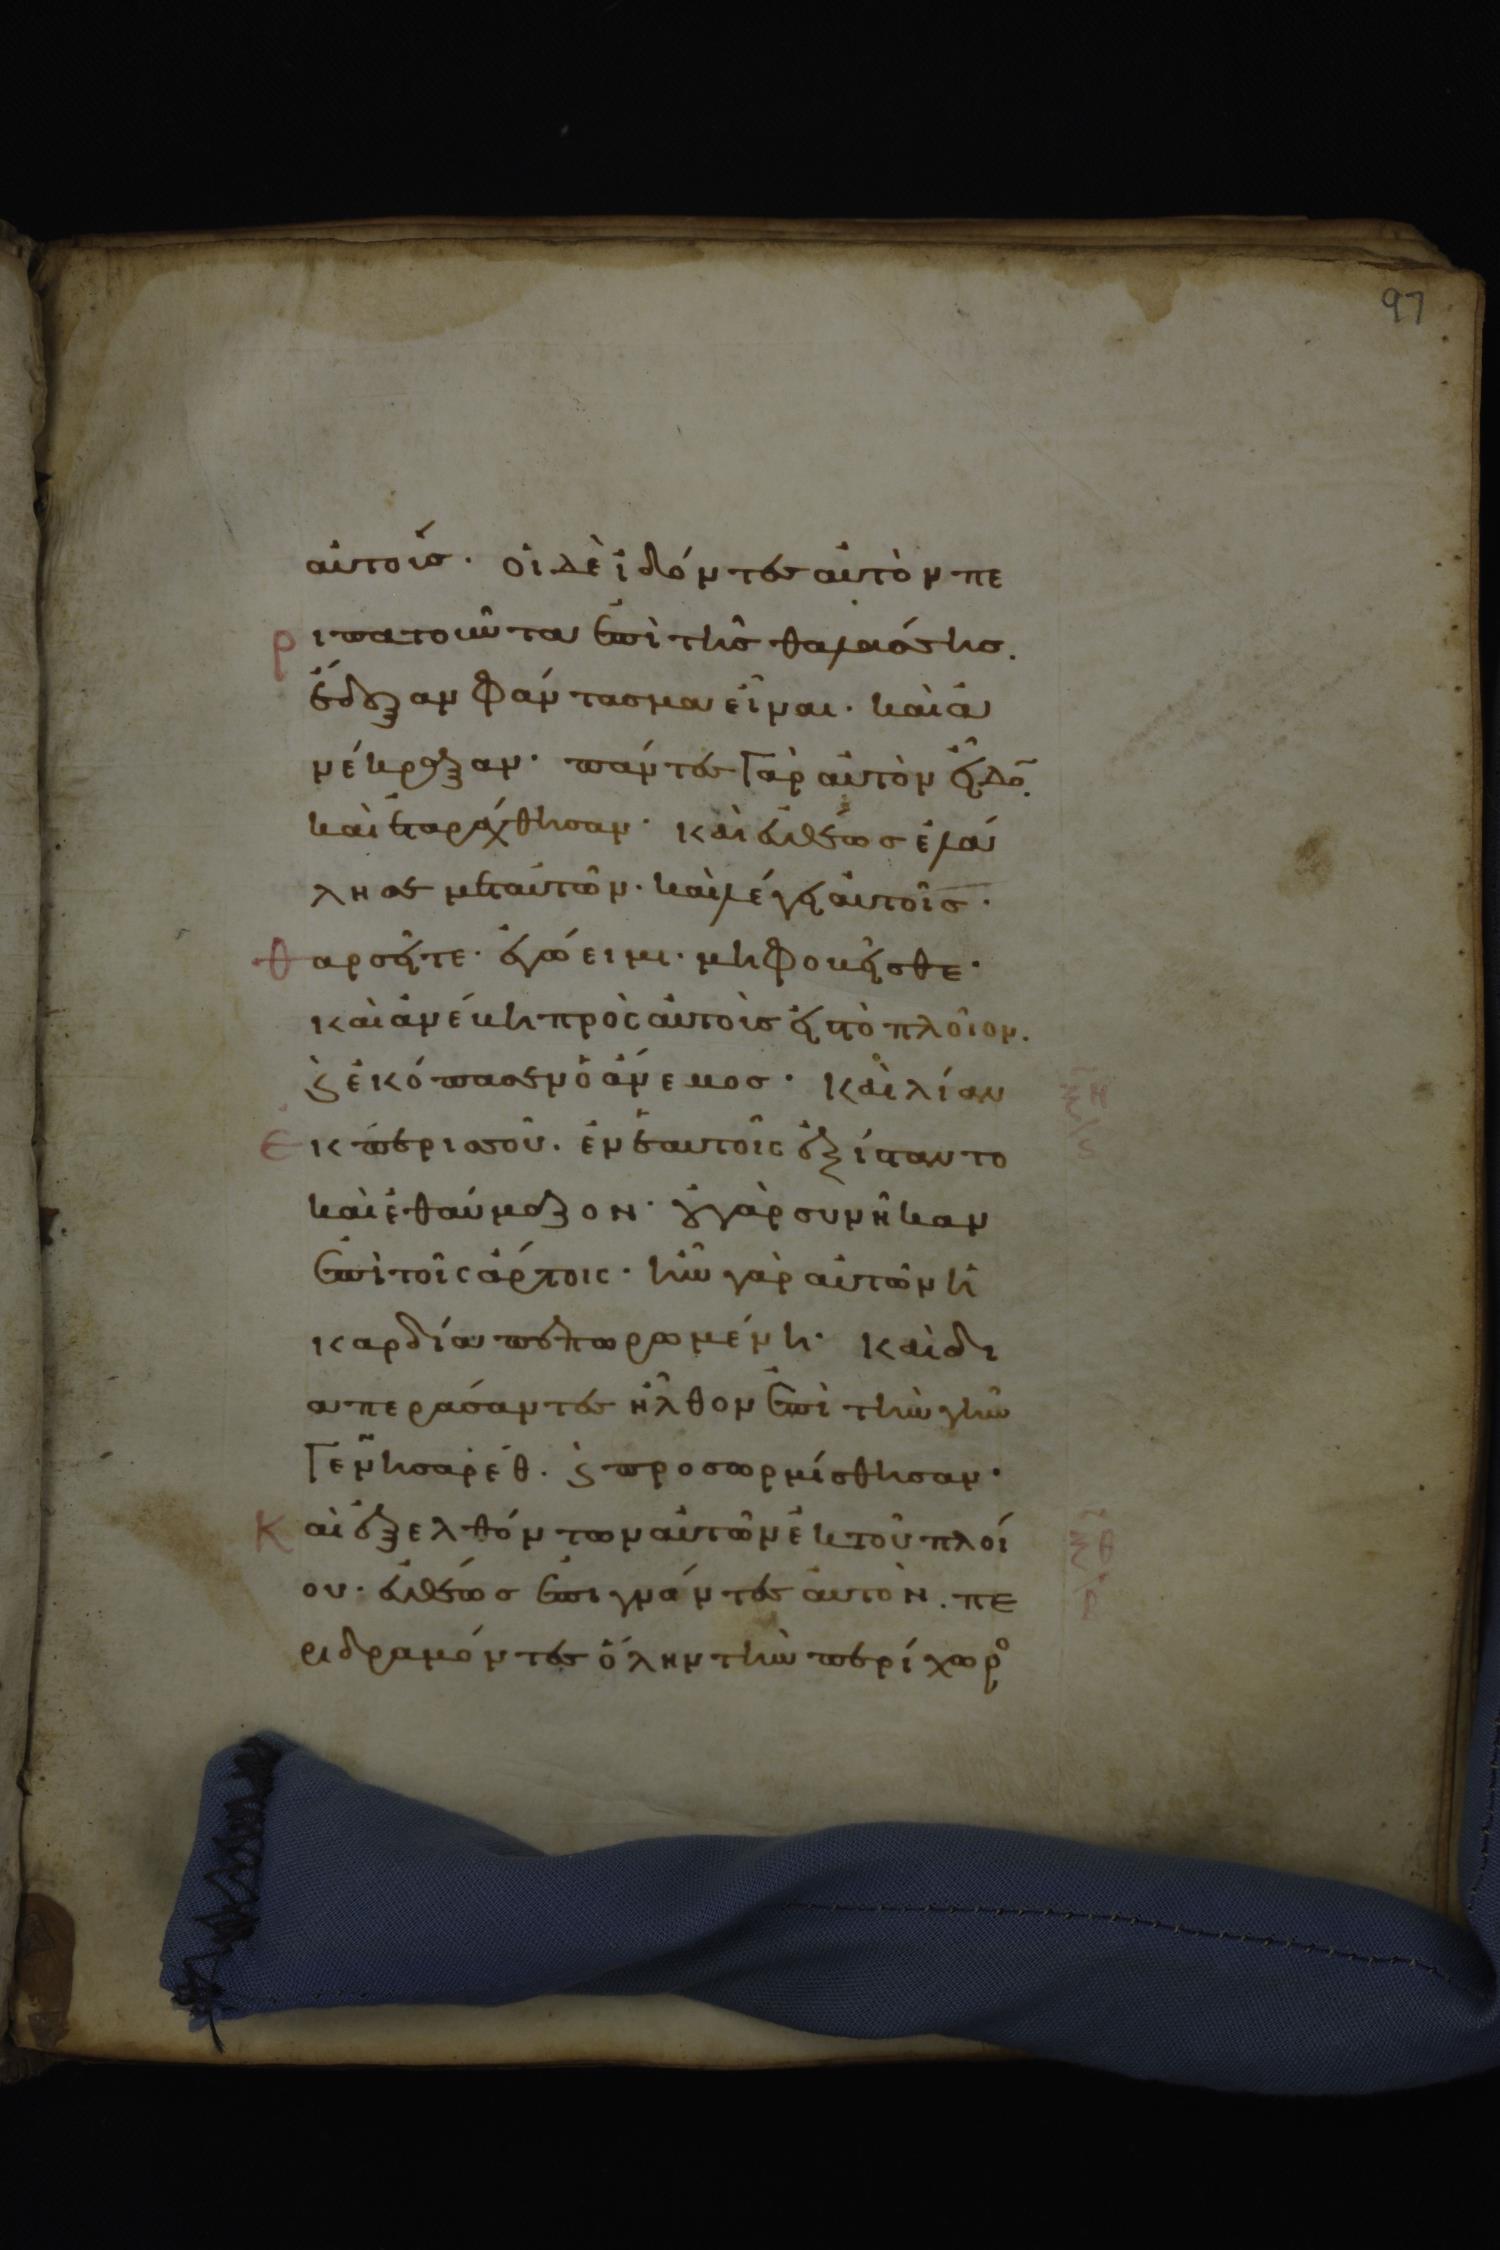 97
αὐτούς· οἱ δὲ ἰδόντες αὐτὸν πε
ριπατοῦντα ἐπὶ τῆς θαλάσσης.
ἔδοξαν φάντασμα εἶναι· καὶ ἀ
νέκραξαν· πάντες γὰρ αὐτὸν εἶδο̅.
καὶ ἐταράχθησαν· καὶ εὐθέως ἐλά
λησε μετ αὐτῶν· καὶ λέγει αὐτοῖς·
θαρσεῖτε· ἐγώ ειμι· μὴ φοβεῖσθε·
καὶ ἀνέβη πρὸς αὐτοὺς εἰς τὸ πλοῖον.
ϛ ἐκόπασεν ὁ ἄνεμος· καὶ λίαν
ἐκ περισσοῦ. ἐν ἑαυτοῖς ἐξίσταντο
καὶ ἐθαύμαζον· οὐ γὰρ συνῆκαν
ἐπὶ τοῖς ἄρτοις· ἦν γὰρ αὐτῶν ἡ
καρδία πεπωρωμένη· καὶ δι
απεράσαντες ἦλθον ἐπὶ τὴν γῆν
Γεννησαρέθ. ϛ προσωρμίσθησαν·
Καὶ ἐξελθόντων αὐτῶν ἐκ τοῦ πλοί
ου· εὐθέως ἐπιγνόντες αὐτὸν. πε
ριδραμόντες ὅλην τὴν περίχωρο